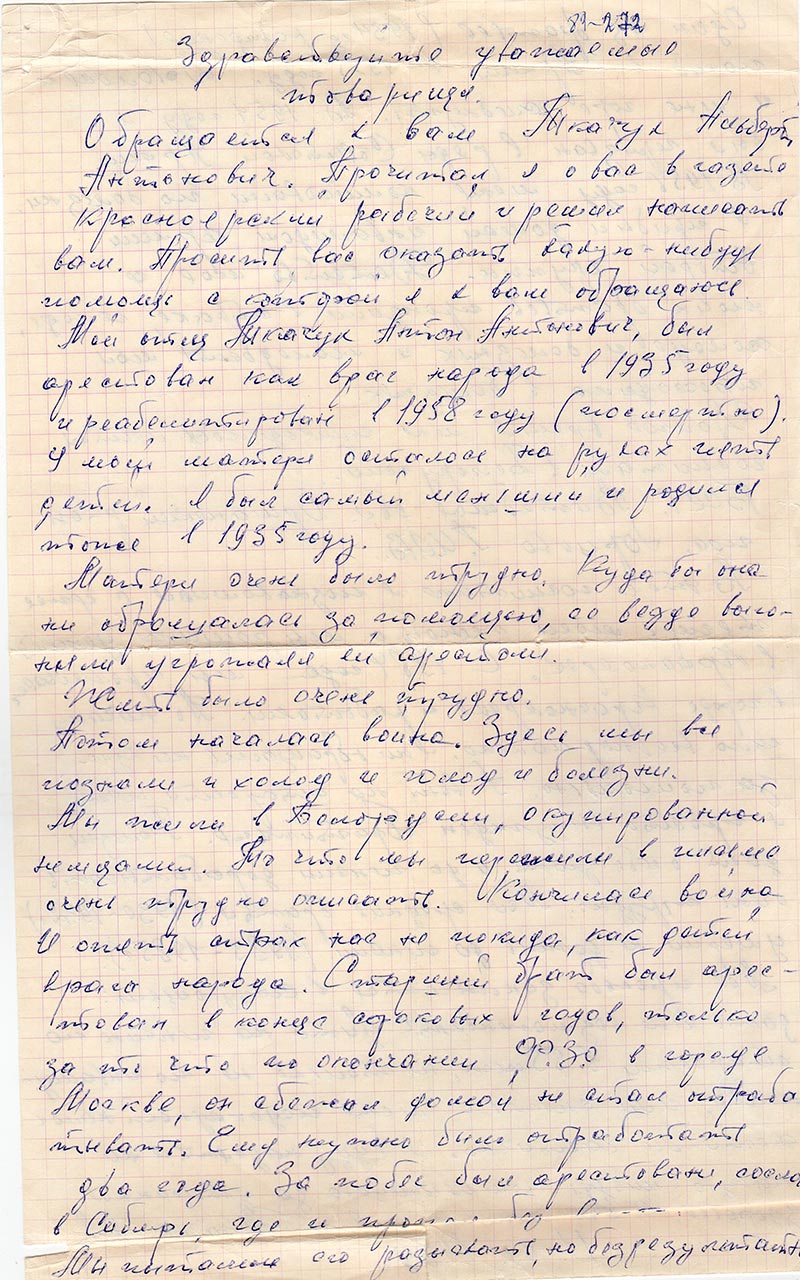 89-272
Здравствуйте уважаемые
товарищи.
Обращается к вам Ткачук Альберт
Антонович. Прочитал я о вас в газете
Красноярский рабочий и решил написать
вам. Просить вас оказать какую-нибудь
помощь с которой я к вам обращаюсь.
Мой отец Ткачук Антон Антонович, был
арестован как враг народа в 1935 году
и реабелитирован в 1958 году (посмертно).
У моей матери осталось на руках пять
детей. Я был самый меньший и родился
тоже в 1935 году.
Матери очень было трудно. Куда бы она
ни обращалась за помощью, ее везде выго-
няли угрожали ей арестом.
Жить было очень трудно.
Потом началась война. Здесь мы все
познали и холод и голод и болезни.
Мы жили в Белоруссии, окупированной
немцами. То что мы пережили в письме
очень трудно описать. Кончилась война
И опять страх нас не покида, как детей
врага народа. Старший брат был арес-
тован в конце сороковых годов, только
за то что по окончании Ф.З.О в городе
Москве, он сбежал домой не стал отраба
тывать. Ему нужно было отработать
два года. За побег был арестован, сосла
в Сибирь, где и
Мы пытались его разыскать, но безрезультатн